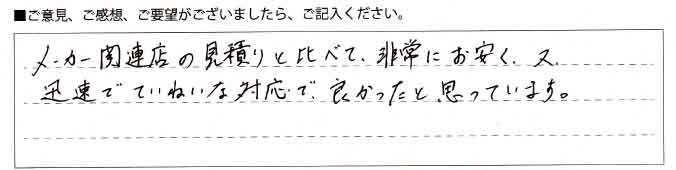 ■ご意見、ご感想、ご要望がございましたら、ご記入ください。
メーカー関連店の見積りと比べて、非常にお安く、又
迅速でていねいな対応で、良かったと思っています。